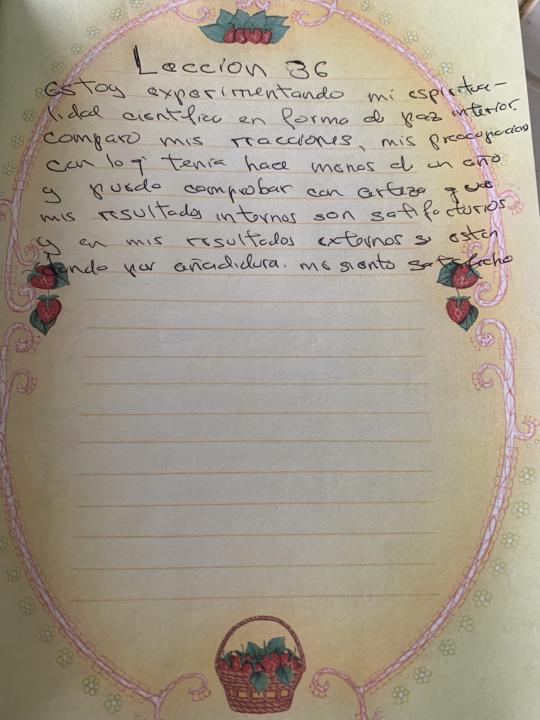 Leccion 36
Estoy experimentando mi espiritua-
lidad cientifica en forma d paz interior
comparo mis reacciones, mis preocupacion
con lo q tenia hace menos d un año
y puedo comprobar con certeza que
mis resultados internos son satifactorios
y en mis resultados externos se estan
dando por añadidura. me siento satisfecho